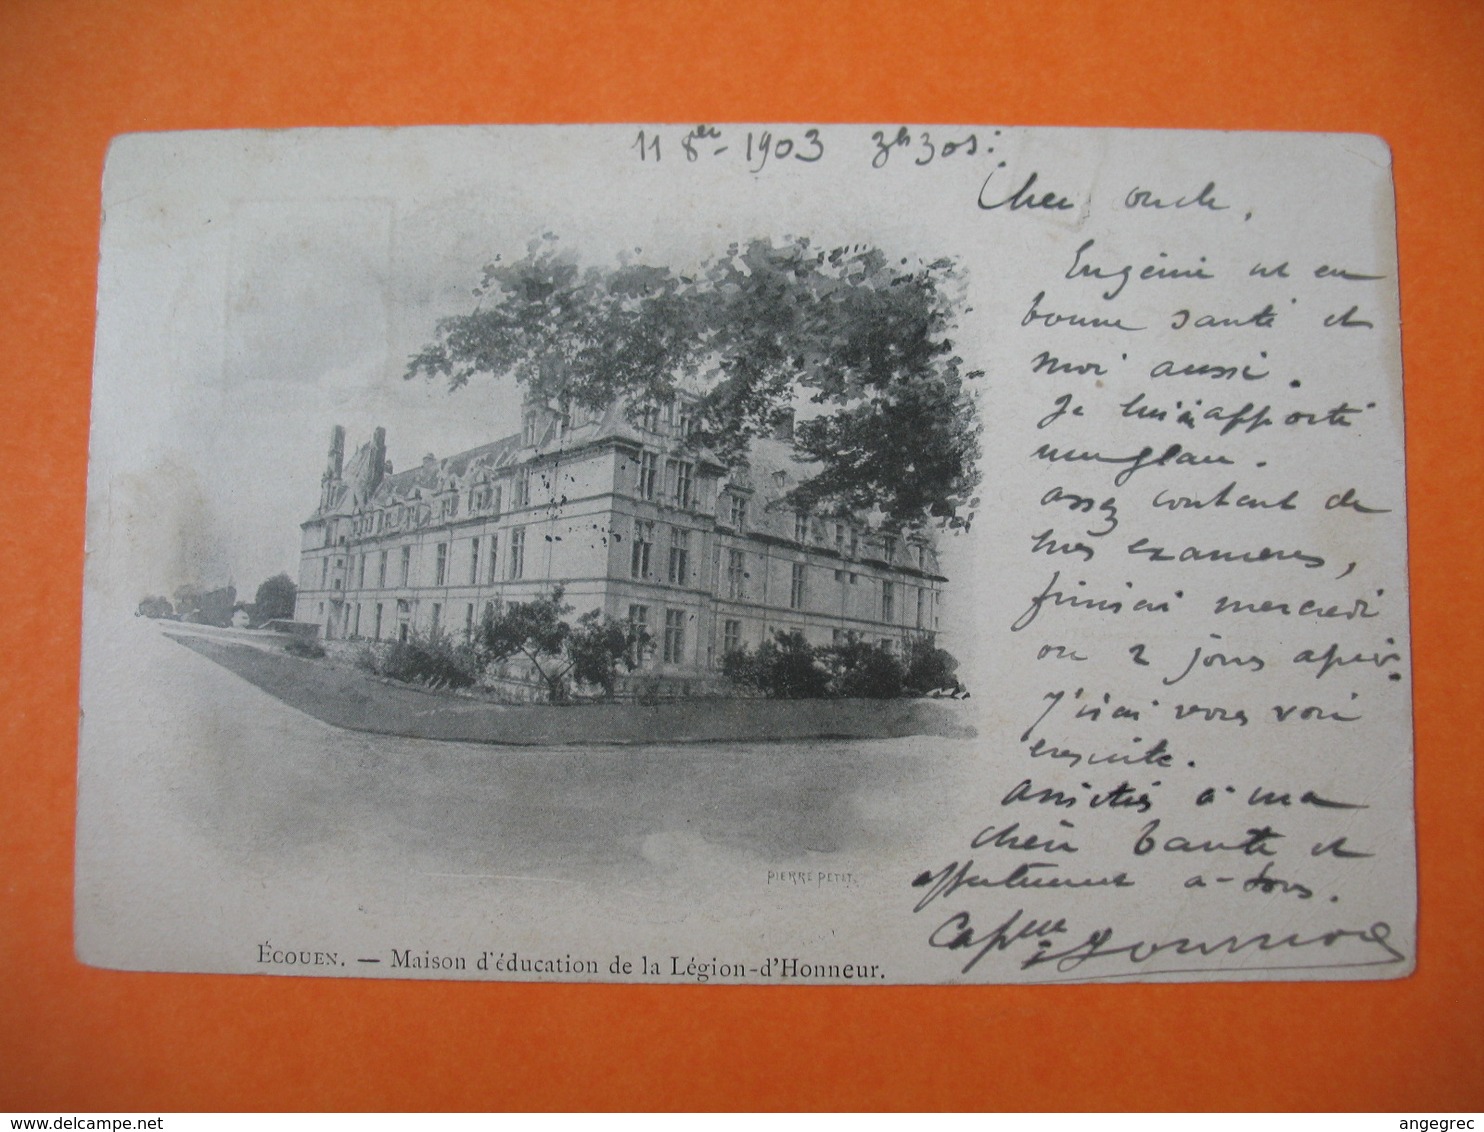 11 8er - 1903 3h 30 s:
Cher oncle,
Eugénie est en
bonne santé et
moi aussi.
Je lui ai apporté
assez content de
mes examens,
finirai mercredi
ou 2 jours après.
J'irai vous voir
ensuite.
Amitiés à ma
chère tante et
affectueuses à tous.
Capne
PIERRE PETIT.
ÉCOUEN. — Maison d'éducation de la Légion-d'Honneur.
delcampe.net
angegrec